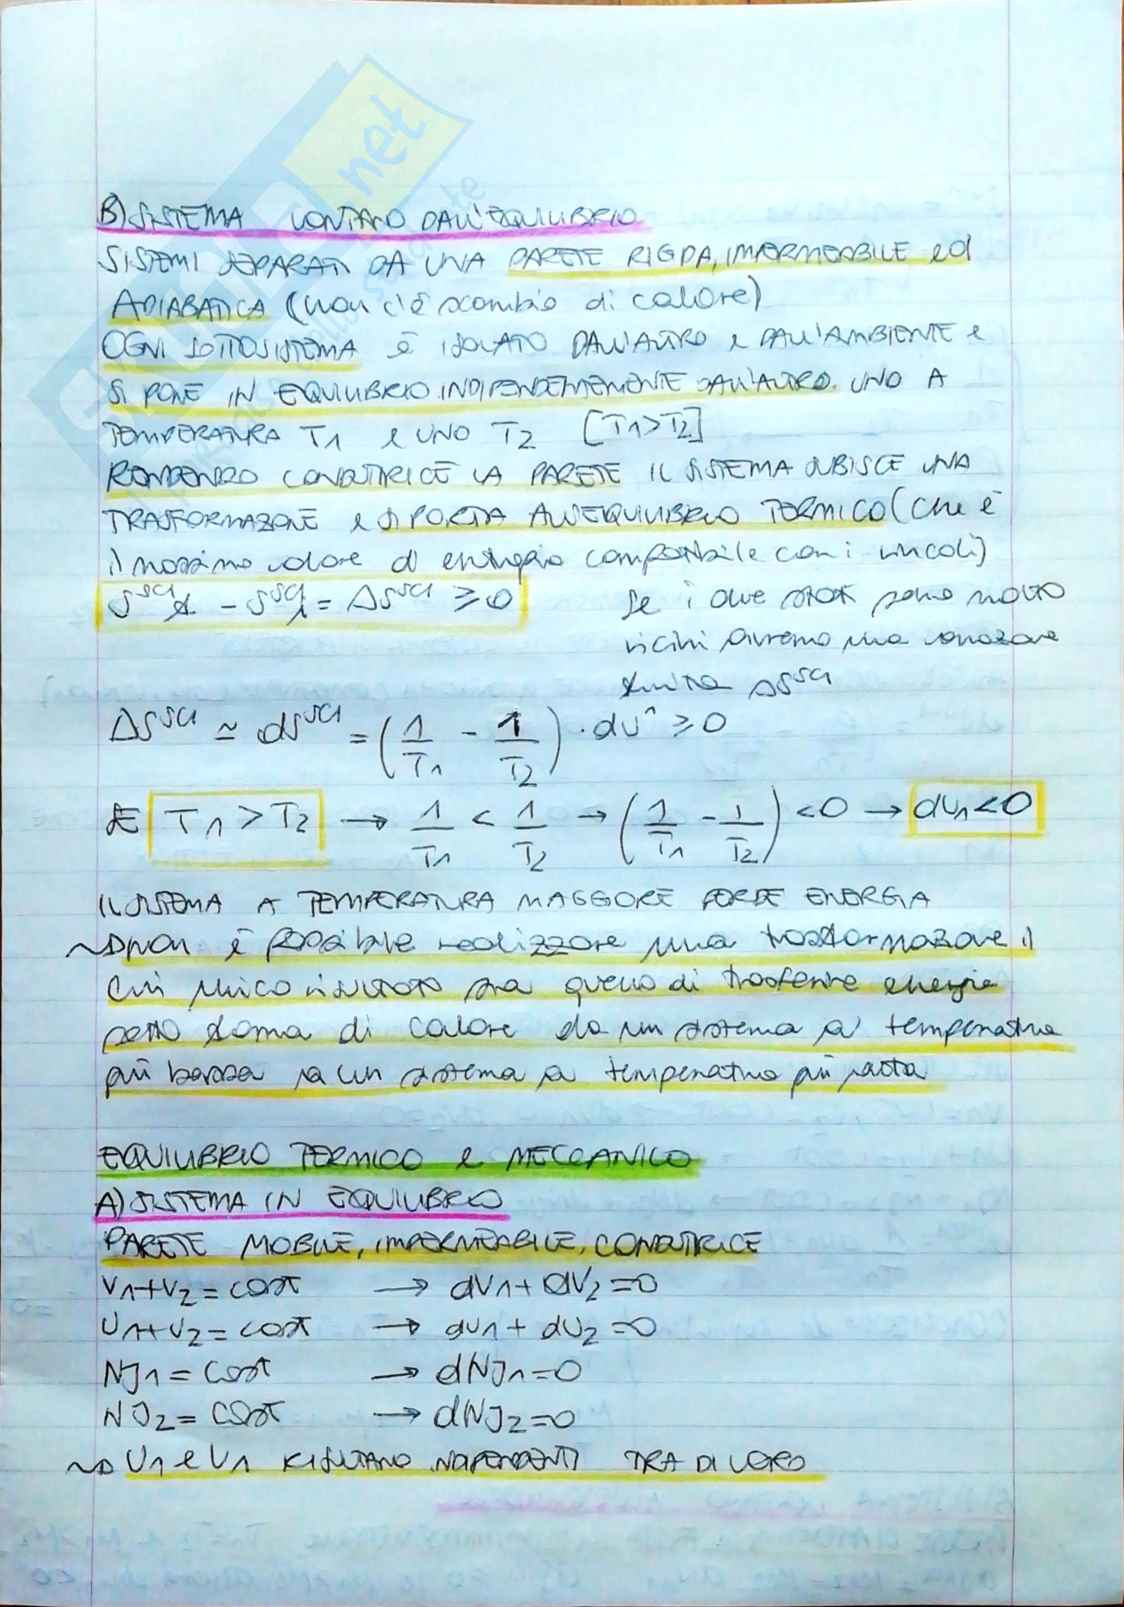 B) SISTEMA LONTANO DALL'EQUILIBRIO
SISTEMI SEPARATI DA UNA PARETE RIGIDA, IMPERMEABILE ed
ADIABATICA (non c'è scambio di calore)
OGNI SOTTOSISTEMA è ISOLATO DALL'ALTRO e DALL'AMBIENTE e
SI PONE IN EQUILIBRIO INDIPENDENTEMENTE DALL'ALTRO. UNO A
TEMPERATURA T1 e UNO T2 [T1>T2]
RENDENDO CONDUTTRICE LA PARETE IL SISTEMA SUBISCE UNA
TRASFORMAZIONE e SI PORTA ALL'EQUILIBRIO TERMICO (che è
il massimo valore di entropia compatibile con i vincoli)
= ΔS ≥ 0
Se i due stati sono molto
vicini avremo una variazione
finita ΔS
ΔS ≃ dS = (1/T1 - 1/T2) · dU1 ≥ 0
SE T1 > T2 → 1/T1 < 1/T2 → (1/T1 - 1/T2) < 0 → dU1 < 0
IL SISTEMA A TEMPERATURA MAGGIORE PERDE ENERGIA
non è possibile realizzare una trasformazione il
cui unico risultato sia quello di trasferire energia
sotto forma di calore da un sistema a temperatura
più bassa a un sistema a temperatura più alta
EQUILIBRIO TERMICO e MECCANICO
A) SISTEMA IN EQUILIBRIO
PARETE MOBILE, IMPERMEABILE, CONDUTTRICE
V1+V2 = cost → dV1 + dV2 = 0
U1+U2 = cost → dU1 + dU2 = 0
NJ1 = cost → dNJ1 = 0
NJ2 = cost → dNJ2 = 0
U1 e V1 RISULTANO INDIPENDENTI TRA DI LORO
net